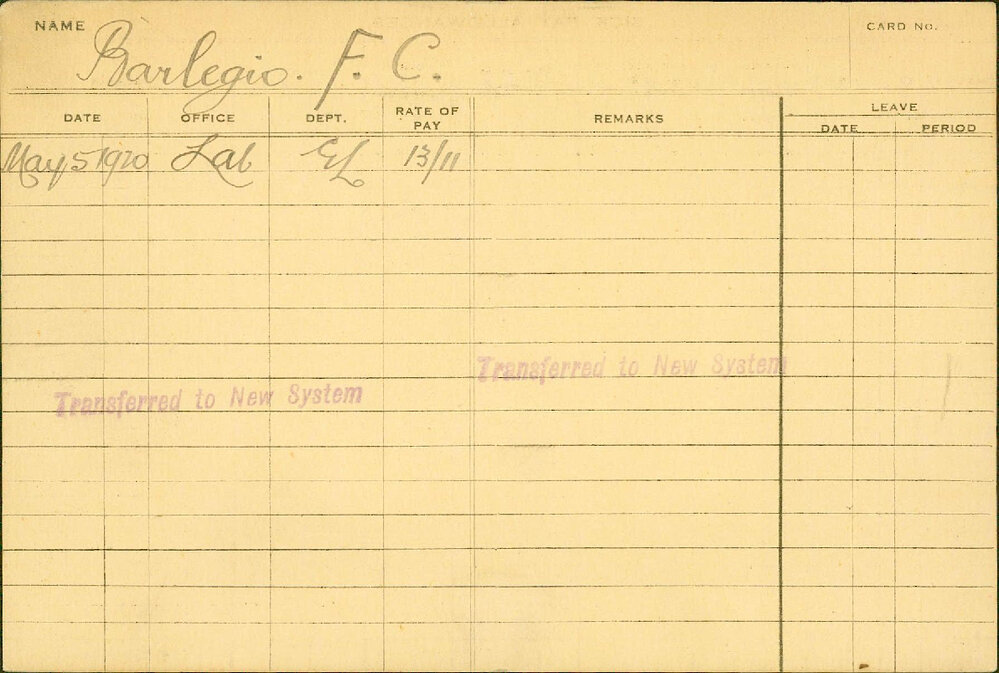 NAME Barlegio. F. C. CARD No.
DATE OFFICE DEPT. RATE OF PAY REMARKS LEAVE
DATE PERIOD
May 5 1920 Lab EL 13/11
Transferred to New System
Transferred to New System